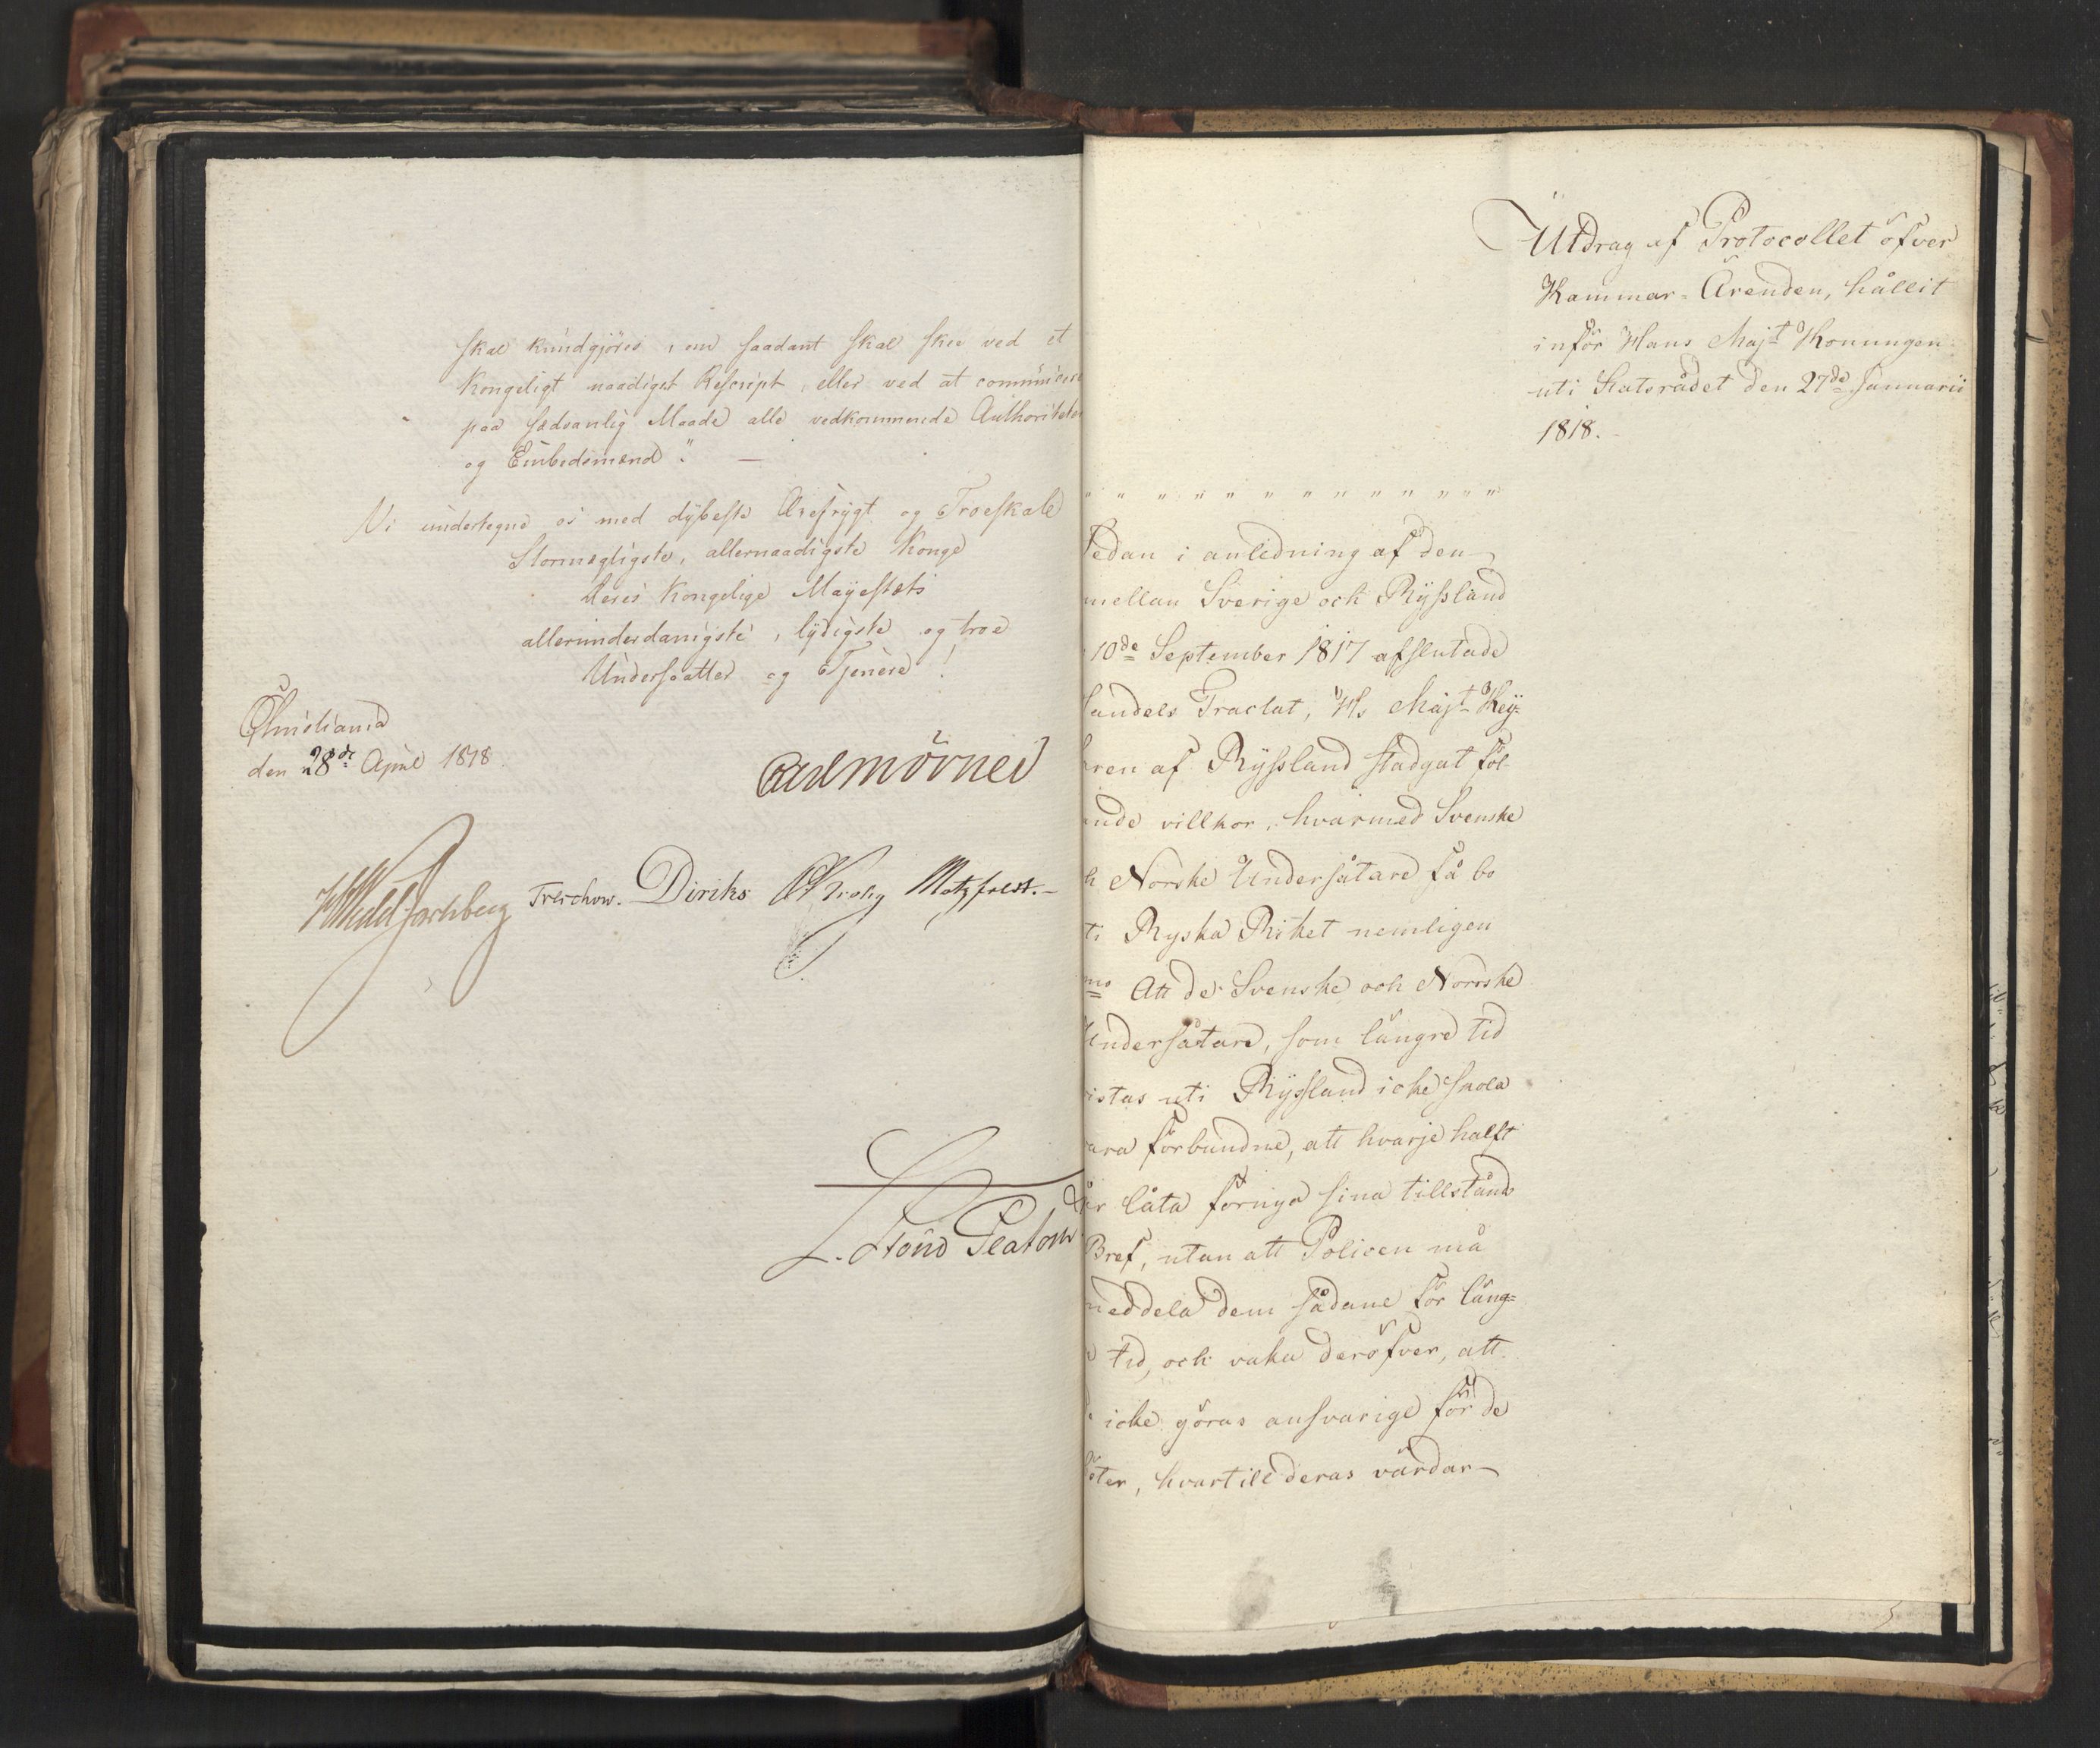 skal kundgjöres, om saadant skal skee ved et
Kongeligt naadigst Rescript, eller ved at communicere
paa sædvanlig Maade alle vedkommende Authoriteter
og Embedsmænd". —
Vi undertegne os med dybeste Ærefrygt og Troeskab
Stormægtigste, allernaadigste Konge
Deres Kongelige Mayestæts
allerunderdanigste, lydigste og troe
Undersaatter og Tjenere!
Christiania
den 28de April 1818.
Mörner
Treschow. Diriks Krohg Motzfeldt.
L. Stoud Platou
Utdrag af Protocollet öfver
Kammar-Ärenden, hållit
inför Hans Majt Konungen
uti Statsrådet den 27de Januarii
1818.
" " " " " " " " " " " " "
Sedan i anledning af den
mellan Sverige och Ryssland
10de September 1817 afslutade
handels Tractat, Hs Majt Key=
aren af Ryssland stadgat föl-
ande villkor, hvarmed Svenske
h Norske Undersåtare få bo
ti Ryska Riket nemligen
mo Att de Svenske och Norrske
Undersåtare, som längre tid
istas uti Ryssland icke skola
ara förbundne, att hvarje halft
år låta förnya sina tillstånds
Bref, utan att Policen må
meddela dem sådane för läng=
e tid, och vaka deröfver, att
icke göras ansvarige för de
öter, hvartill deras värdar